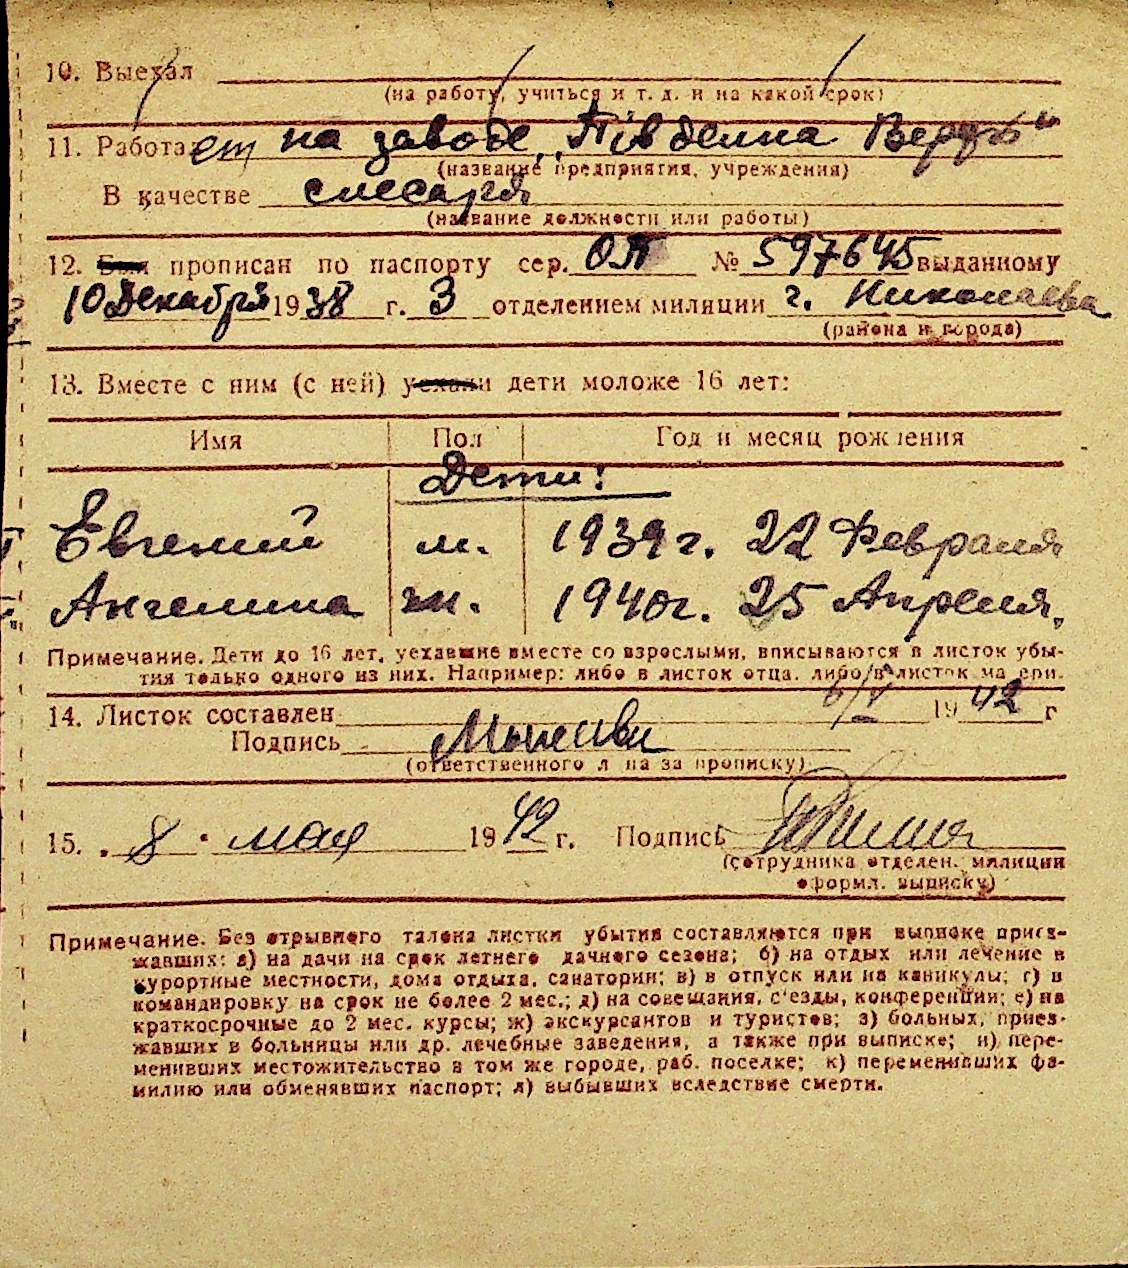 10. Выехал
(на работу, учиться и т. д. и на какой срок)
11. Работает на заводе „Південна Верфь“
(название предприятия, учреждения)
В качестве слесаря
(название должности или работы)
12. Был прописан по паспорту сер. ОП № 597645 выданному
10 Декабря 1938 г. 3 отделением милиции г. Николаева
(района и города)
13. Вместе с ним (с ней) уехали дети моложе 16 лет:
Имя Пол Год и месяц рождения
Дети:
Евгений м. 1939 г. 22 Февраля
Ангелина ж. 1940 г. 25 Апреля,
Примечание. Дети до 16 лет, уехавшие вместе со взрослыми, вписываются в листок убы-
тия только одного из них. Например: либо в листок отца, либо в листок матери.
14. Листок составлен 6/V 1942 г
Подпись
(ответственного лица за прописку)
15. „8“ мая 1942 г. Подпись
(сотрудника отделен. милиции
оформл. выписку)
Примечание. Без отрывного талона листки убытия составляются при выписке приез-
жавших: а) на дачи на срок летнего дачного сезона; б) на отдых или лечение в
курортные местности, дома отдыха, санатории; в) в отпуск или на каникулы; г) в
командировку на срок не более 2 мес.; д) на совещания, с'езды, конференции; е) на
краткосрочные до 2 мес. курсы; ж) экскурсантов и туристов; з) больных, приез-
жавших в больницы или др. лечебные заведения, а также при выписке; и) пере-
менивших местожительство в том же городе, раб. поселке; к) переменивших фа-
милию или обменявших паспорт; л) выбывших вследствие смерти.